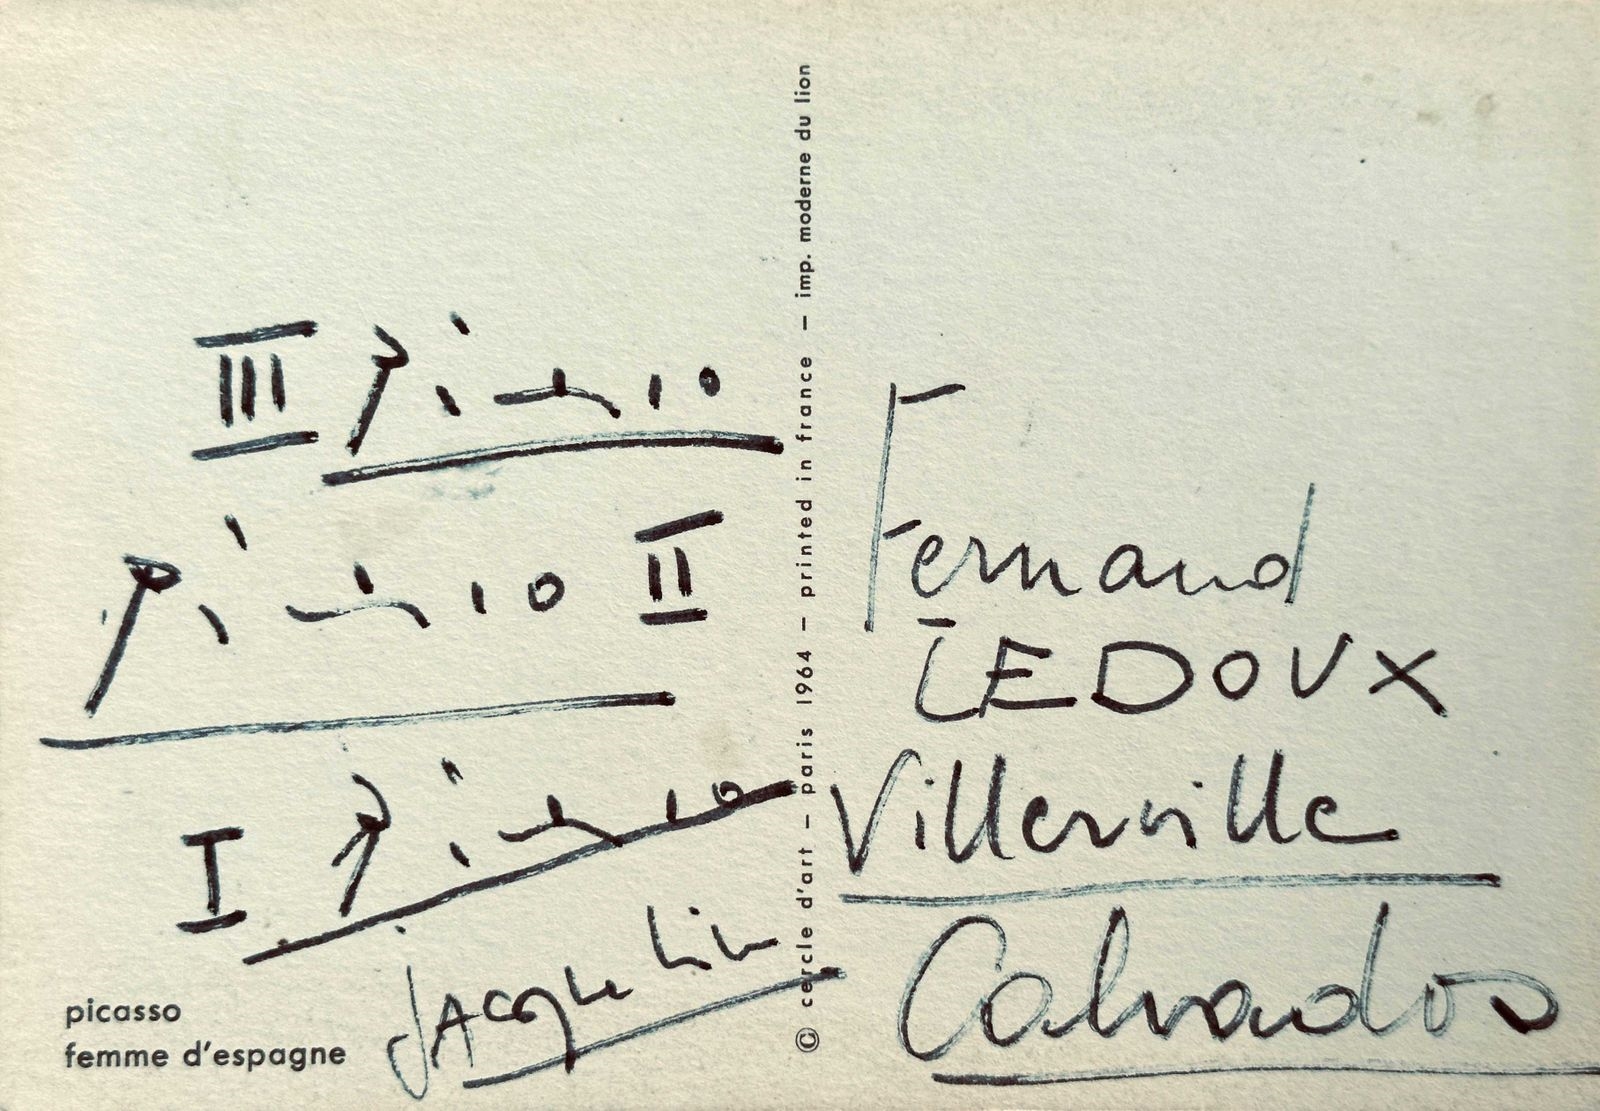 III Picasso
Picasso II
I Picasso
Jacqueline
picasso
femme d'espagne
© cercle d'art – paris 1964 – printed in france – imp. moderne du lion
Fernand
LEDOUX
Villerville
Calvados